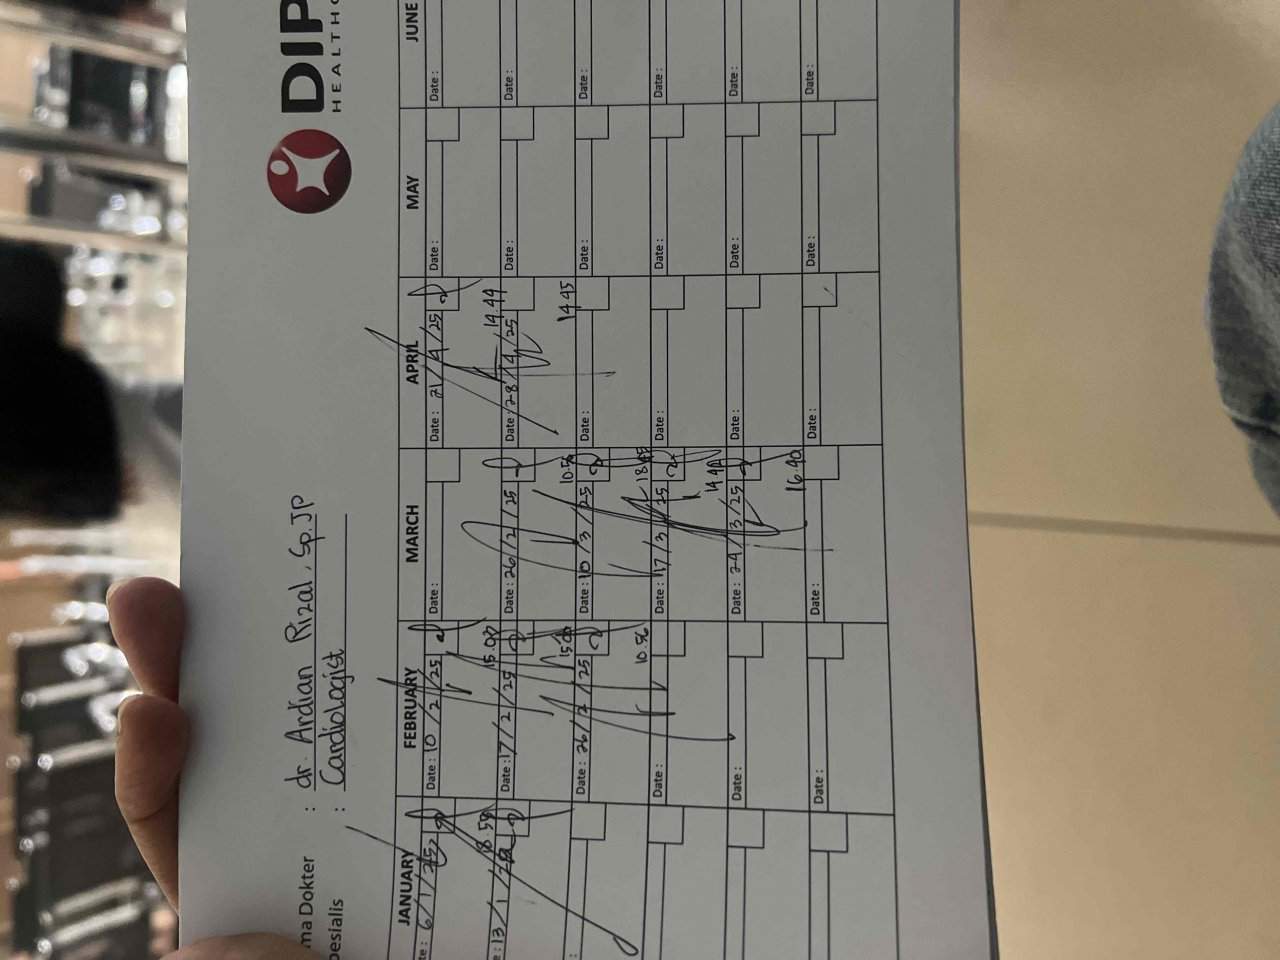 DIP
HEALTHC
ma Dokter : dr. Ardian Rizal, Sp.JP
pesialis : Cardiologist
JANUARY FEBRUARY MARCH APRIL MAY JUNE
te: 6/1/25 Date: 10/2/25 Date: Date: 21/4/25 Date: Date:
15.00 14.44
e: 13/1/ Date: 17/2/25 Date: 26/2/25 Date: 28/4/25 Date: Date:
15.00 10.56 14.45
: Date: 26/2/25 Date: 10/3/25 Date: Date: Date:
10.56
Date: Date: 17/3/25 Date: Date: Date:
Date: Date: 24/3/25 Date: Date: Date:
16.40
Date: Date: Date: Date: Date: